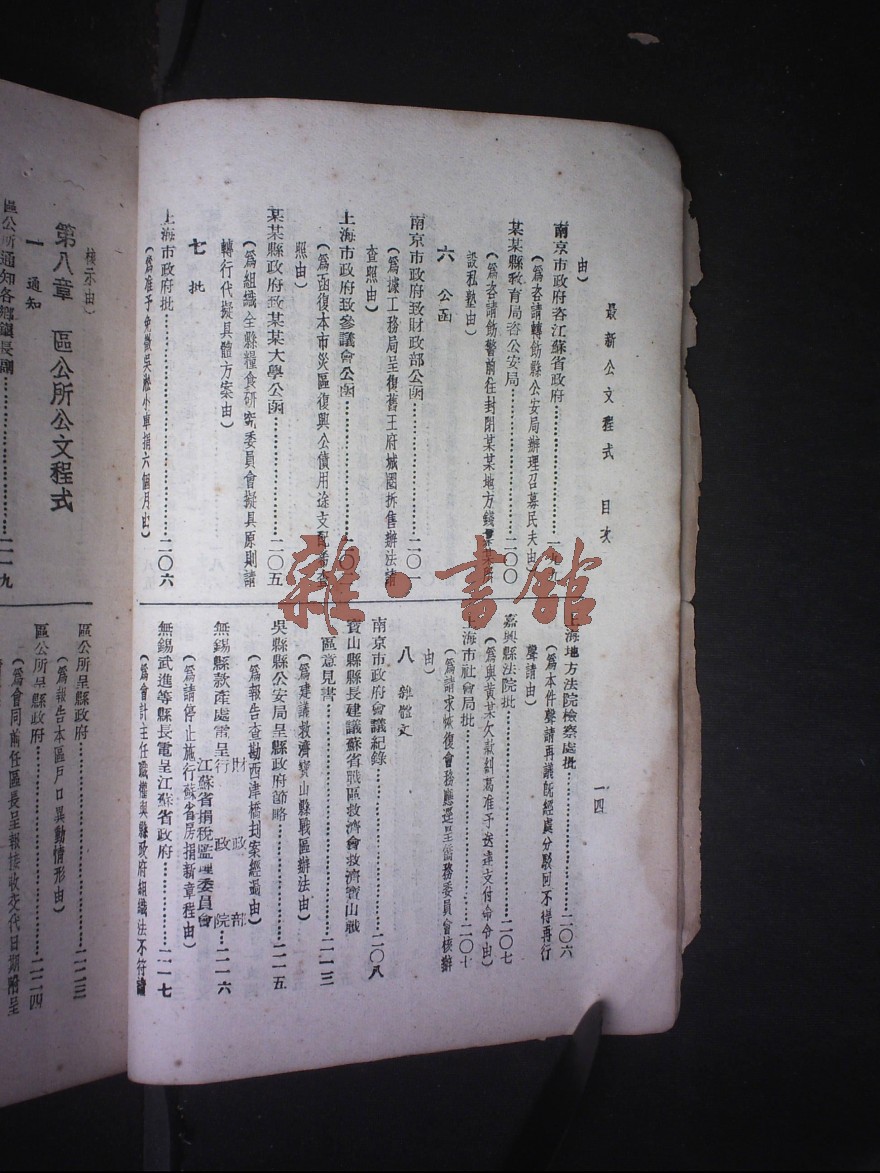 最新公文程式 目次
一四
由)
南京市政府咨江蘇省政府
(爲咨請轉飭縣公安局辦理召募民夫由)
某某縣敎育局咨公安局……二〇〇
(爲咨請飭警前往封閉某某地方錢
設私塾由)
六 公函
南京市政府致財政部公函……二〇一
(爲據工務局呈復舊王府城圈拆售辦法請
查照由)
上海市政府致參議會公函
(爲函復本市災區復興公債用途支配希查
照由)
某某縣政府致某某大學公函……二〇五
(爲組織全縣糧食研究委員會擬具原則請
轉行代擬具體方案由)
七 批
上海市政府批……二〇六
(爲准予免徵吳淞小車捐六個月由)
上海地方法院檢察處批……二〇六
(爲本件聲請再議旣經處分駁回不得再行
聲請由)
嘉興縣法院批……二〇七
(爲與黃某欠款糾葛准予送達支付命令由)
上海市社會局批……二〇七
(爲請求恢復會務應逕呈僑務委員會核辦
由)
八 雜體文
南京市政府會議紀錄……二〇八
寶山縣縣長建議蘇省戰區救濟會救濟寶山戰
區意見書……二一三
(爲建議救濟寶山縣戰區辦法由)
吳縣縣公安局呈縣政府節略……二一五
(爲報吿查勘西津橋封案經過由)
無錫縣款產處電呈行政院 財政部 江蘇省捐稅監理委員會……二一六
(爲請停止施行蘇省房捐新章程由)
無錫武進等縣長電呈江蘇省政府……二一七
(爲會計主任職權與縣政府組織法不符請
核示由)
第八章 區公所公文程式
一 通知
區公所通知各鄉鎭長副……二一九
區公所呈縣政府……二二三
(爲報吿本區戶口異動情形由)
區公所呈縣政府……二二四
(爲會同前任區長呈報接收交代日期附呈
雜·書館